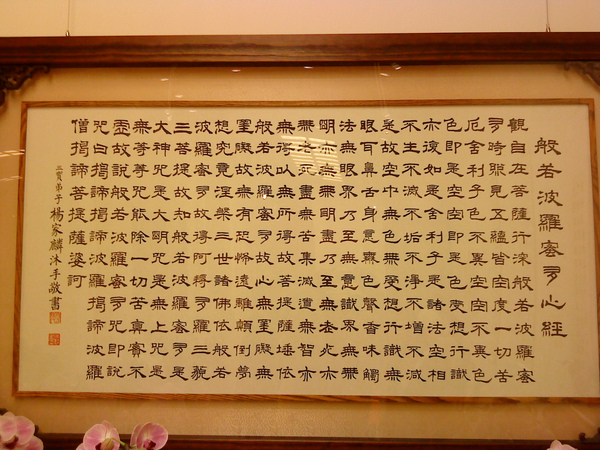 般若波羅蜜多心經
觀自在菩薩行深般若波羅蜜
多時照見五蘊皆空度一切苦
厄舍利子色不異空空不異色
色即是空空即是色受想行識
亦復如是舍利子是諸法空相
不生不滅不垢不淨不增不減
是故空中無色無受想行識無
眼耳鼻舌身意無色聲香味觸
法無眼界乃至無意識界無無
明亦無無明盡乃至無老死亦
無老死盡無苦集滅道無智亦
無得以無所得故菩提薩埵依
般若波羅蜜多故心無罣礙無
罣礙故無有恐怖遠離顛倒夢
想究竟涅槃三世諸佛依般若
波羅蜜多故得阿耨多羅三藐
三菩提故知般若波羅蜜多是
大神咒是大明咒是無上咒是
無等等咒能除一切苦真實不
虛故說般若波羅蜜多咒即說
咒曰揭諦揭諦波羅揭諦波羅
僧揭諦菩提薩婆訶
三寶弟子楊家麟沐手敬書